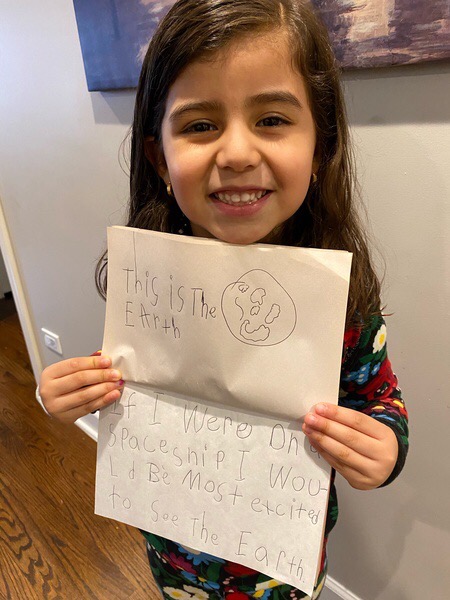 This is The
EArth
If I Were On a
Spaceship I Wou-
Ld Be Most excited
to See The Earth.